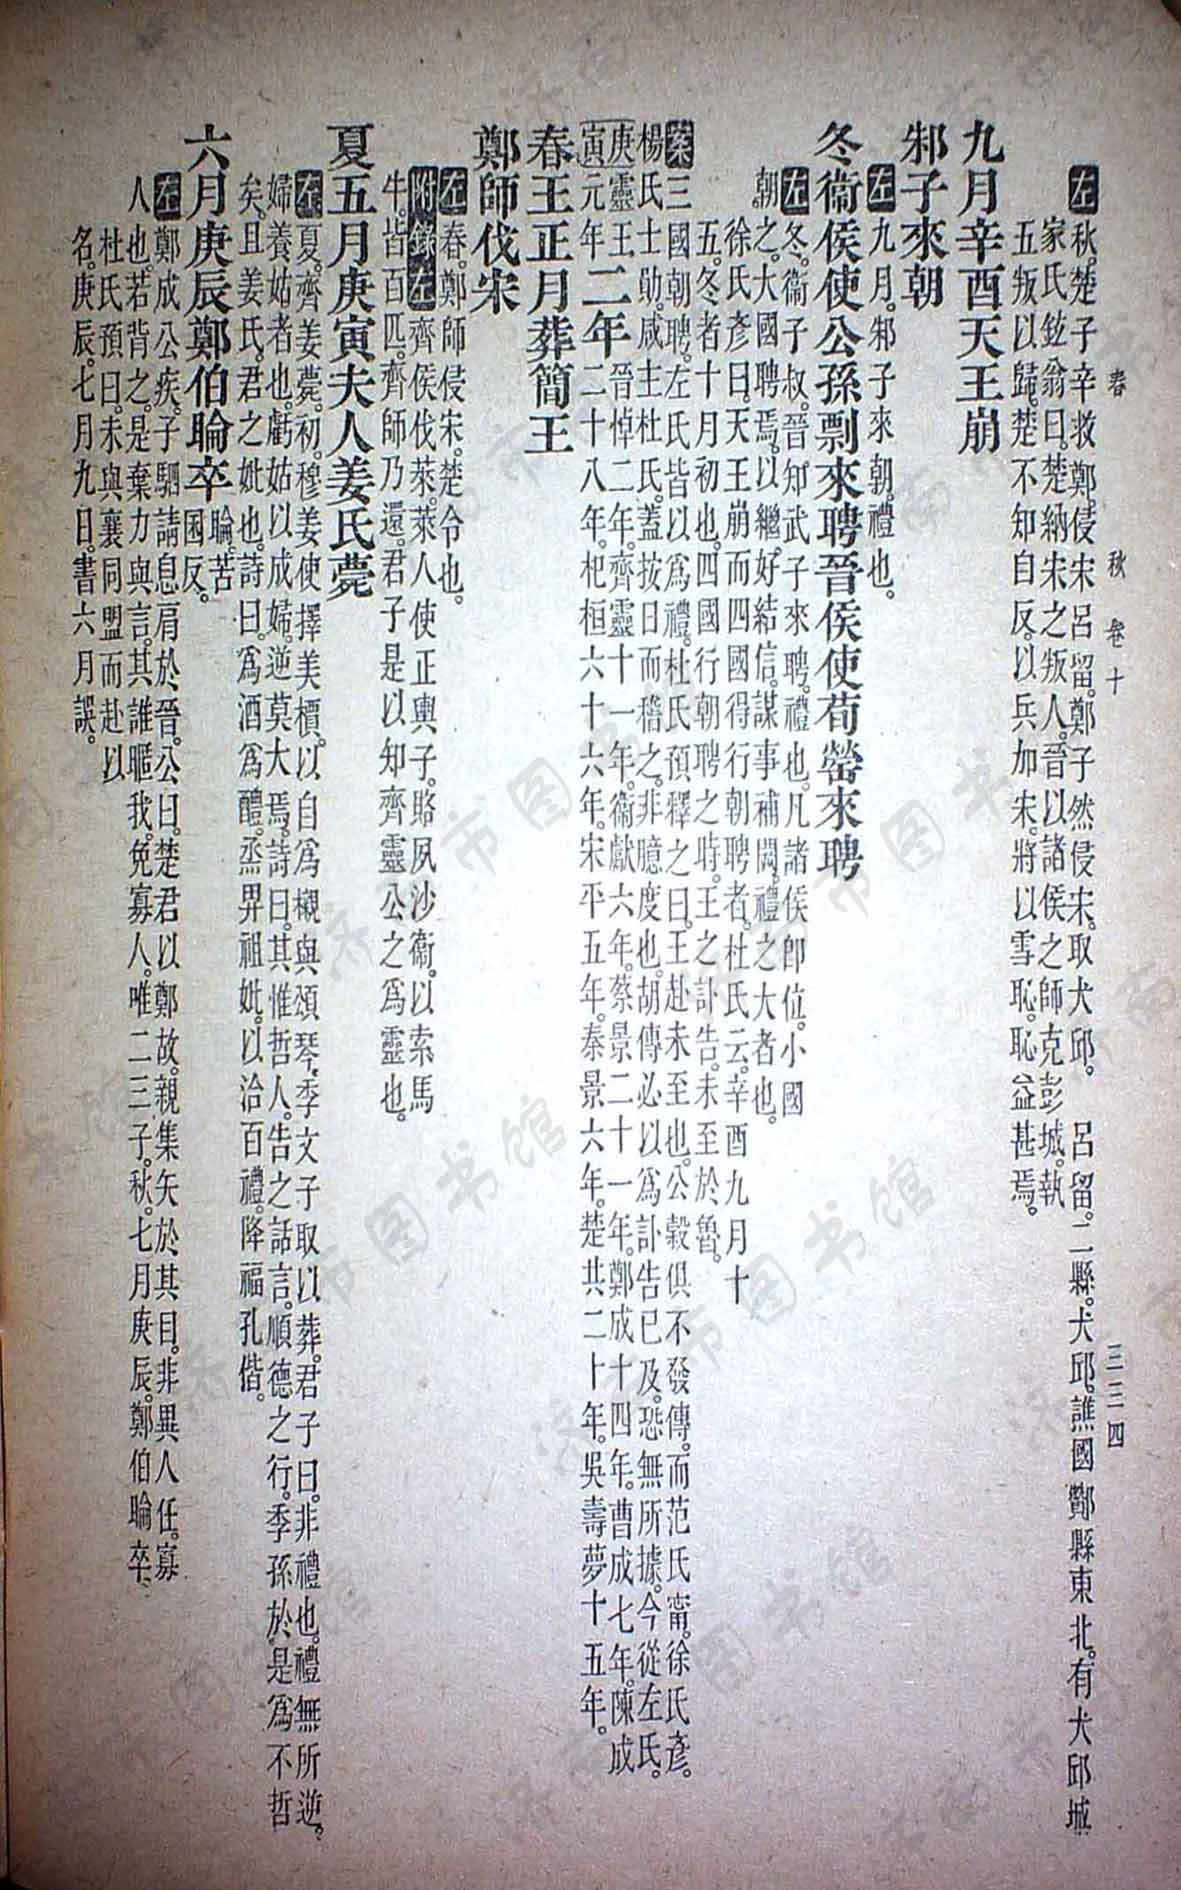 春　秋　卷十　三三四
左秋。楚子辛救鄭。侵宋呂留。鄭子然侵宋。取犬邱。　呂留。二縣。犬邱。譙國酇縣東北。有犬邱城
家氏鉉翁曰。楚納宋之叛人。晉以諸侯之師克彭城。執
五叛以歸。楚不知自反。以兵加宋。將以雪恥。恥益甚焉。
九月辛酉天王崩
邾子來朝
左九月。邾子來朝。禮也。
冬衞侯使公孫剽來聘晉侯使荀罃來聘
左冬。衞子叔。晉知武子來聘。禮也。凡諸侯卽位。小國
朝之。大國聘焉。以繼好結信。謀事補闕。禮之大者也。
徐氏彥曰。天王崩而四國得行朝聘者。杜氏云。辛酉九月十
五。冬者十月初也。四國行朝聘之時。王之訃告。未至於魯。
案三國朝聘。左氏皆以爲禮。杜氏預釋之曰。王赴未至也。公穀俱不發傳。而范氏甯。徐氏彥。
楊氏士勛。咸主杜氏。蓋按日而稽之。非臆度也。胡傳必以爲訃告已及。恐無所據。今從左氏。
庚寅靈王元年二年晉悼二年。齊靈十一年。衞獻六年。蔡景二十一年。鄭成十四年。曹成七年。陳成
二十八年。杞桓六十六年。宋平五年。秦景六年。楚共二十年。吳壽夢十五年。
春王正月葬簡王
鄭師伐宋
左春。鄭師侵宋。楚令也。
附錄左齊侯伐萊。萊人使正輿子。賂夙沙衞。以索馬
牛。皆百匹。齊師乃還。君子是以知齊靈公之爲靈也。
夏五月庚寅夫人姜氏薨
左夏。齊姜薨。初。穆姜使擇美檟。以自爲櫬與頌琴。季文子取以葬。君子曰。非禮也。禮無所逆。
婦養姑者也。虧姑以成婦。逆莫大焉。詩曰。其惟哲人。告之話言。順德之行。季孫於是爲不哲
矣。且姜氏。君之妣也。詩曰。爲酒爲醴。烝畀祖妣。以洽百禮。降福孔偕。
六月庚辰鄭伯睔卒睔。苦囷反。
左鄭成公疾。子駟請息肩於晉。公曰。楚君以鄭故。親集矢於其目。非異人任。寡
人也。若背之。是棄力與言。其誰暱我。免寡人。唯二三子。秋。七月庚辰。鄭伯睔卒、
杜氏預曰。未與襄同盟而赴以
名。庚辰。七月九日。書六月誤。